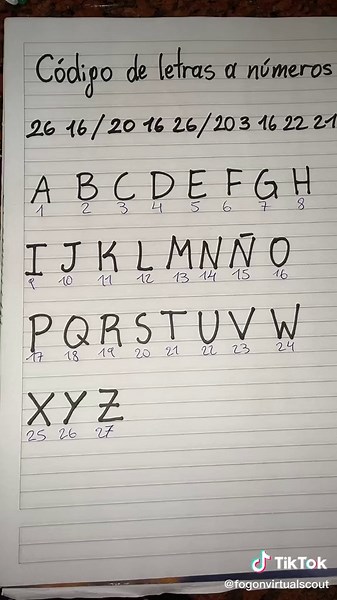 Código de letras a números
26 16/20 16 26/20 3 16 22 21
A B C D E F G H
1 2 3 4 5 6 7 8
I J K L M N Ñ O
9 10 11 12 13 14 15 16
P Q R S T U V W
17 18 19 20 21 22 23 24
X Y Z
25 26 27
TikTok
@fogonvirtualscout